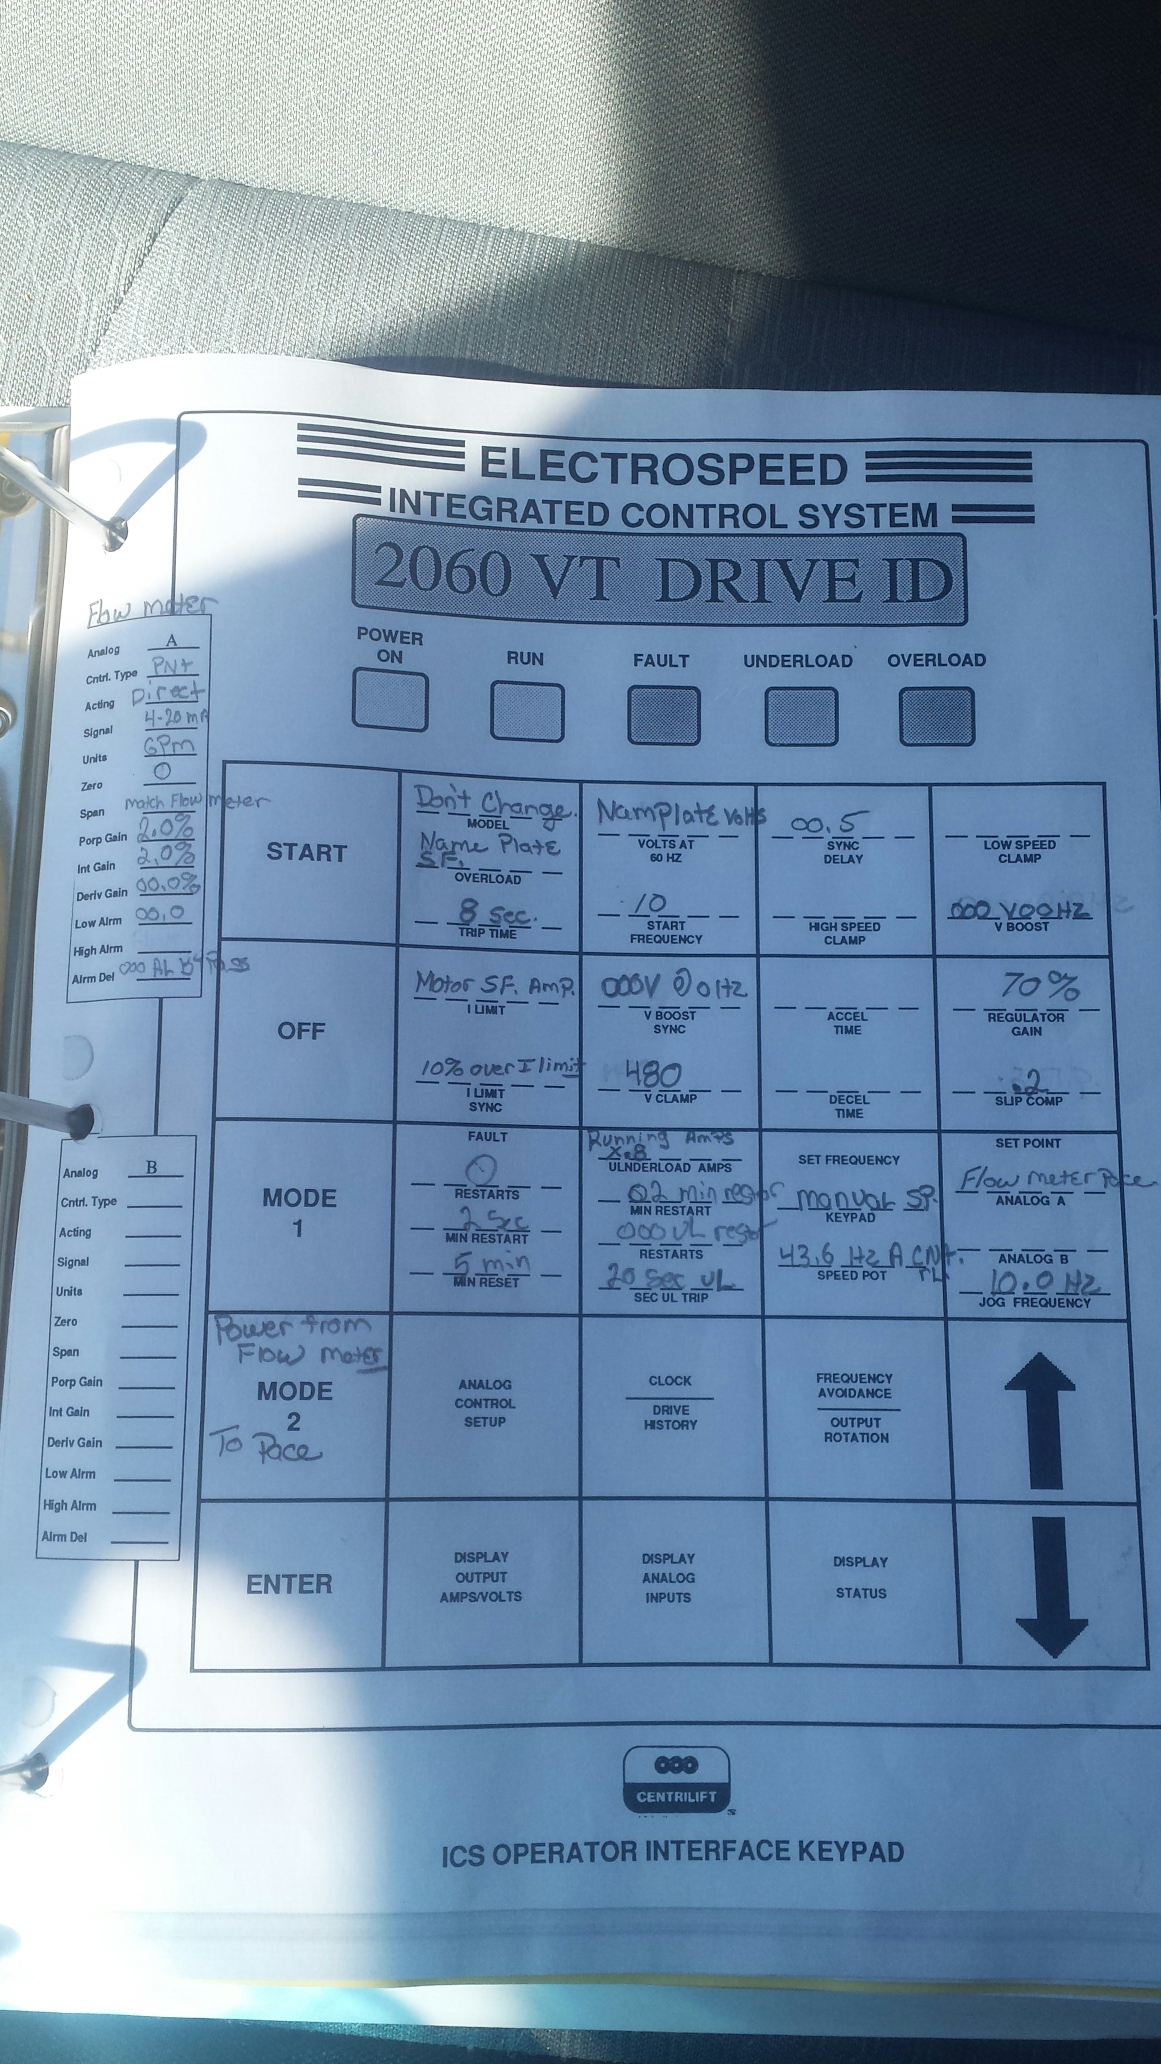 ELECTROSPEED
INTEGRATED CONTROL SYSTEM
2060 VT DRIVE ID
POWER ON
RUN
FAULT
UNDERLOAD
OVERLOAD
Flow meter
Analog A
Cntrl. Type
Acting Direct
Signal 4-20 mA
Units GPm
Zero 0
Span Match Flow meter
Porp Gain 2.0%
Int Gain 2.0%
Deriv Gain 00.0%
Low Alrm 00.0
High Alrm
Alrm Del 000 AL
START
Don't Change.
MODEL
Name Plate
S.F.
OVERLOAD
8 Sec.
TRIP TIME
NamPlate Volts
VOLTS AT
60 HZ
10
START
FREQUENCY
00.5
SYNC
DELAY
HIGH SPEED
CLAMP
LOW SPEED
CLAMP
000 V00HZ
V BOOST
OFF
Motor SF. Amp.
I LIMIT
10% over I limit
I LIMIT
SYNC
000V @ 01Hz
V BOOST
SYNC
480
V CLAMP
ACCEL
TIME
DECEL
TIME
70%
REGULATOR
GAIN
.2
SLIP COMP
MODE
1
FAULT
0
RESTARTS
2 Sec
MIN RESTART
5 min
MIN RESET
Running Amps
x.8
ULNDERLOAD AMPS
02 min restar
MIN RESTART
000 UL restar
RESTARTS
20 Sec UL
SEC UL TRIP
SET FREQUENCY
manual SP.
KEYPAD
43.6 Hz A CNt.
SPEED POT
SET POINT
Flow meter Pace
ANALOG A
ANALOG B
10.0 Hz
JOG FREQUENCY
Power from
Flow meter
MODE
2
To Pace
ANALOG
CONTROL
SETUP
CLOCK
DRIVE
HISTORY
FREQUENCY
AVOIDANCE
OUTPUT
ROTATION
Analog B
Cntrl. Type
Acting
Signal
Units
Zero
Span
Porp Gain
Int Gain
Deriv Gain
Low Alrm
High Alrm
Alrm Del
ENTER
DISPLAY
OUTPUT
AMPS/VOLTS
DISPLAY
ANALOG
INPUTS
DISPLAY
STATUS
CENTRILIFT
ICS OPERATOR INTERFACE KEYPAD